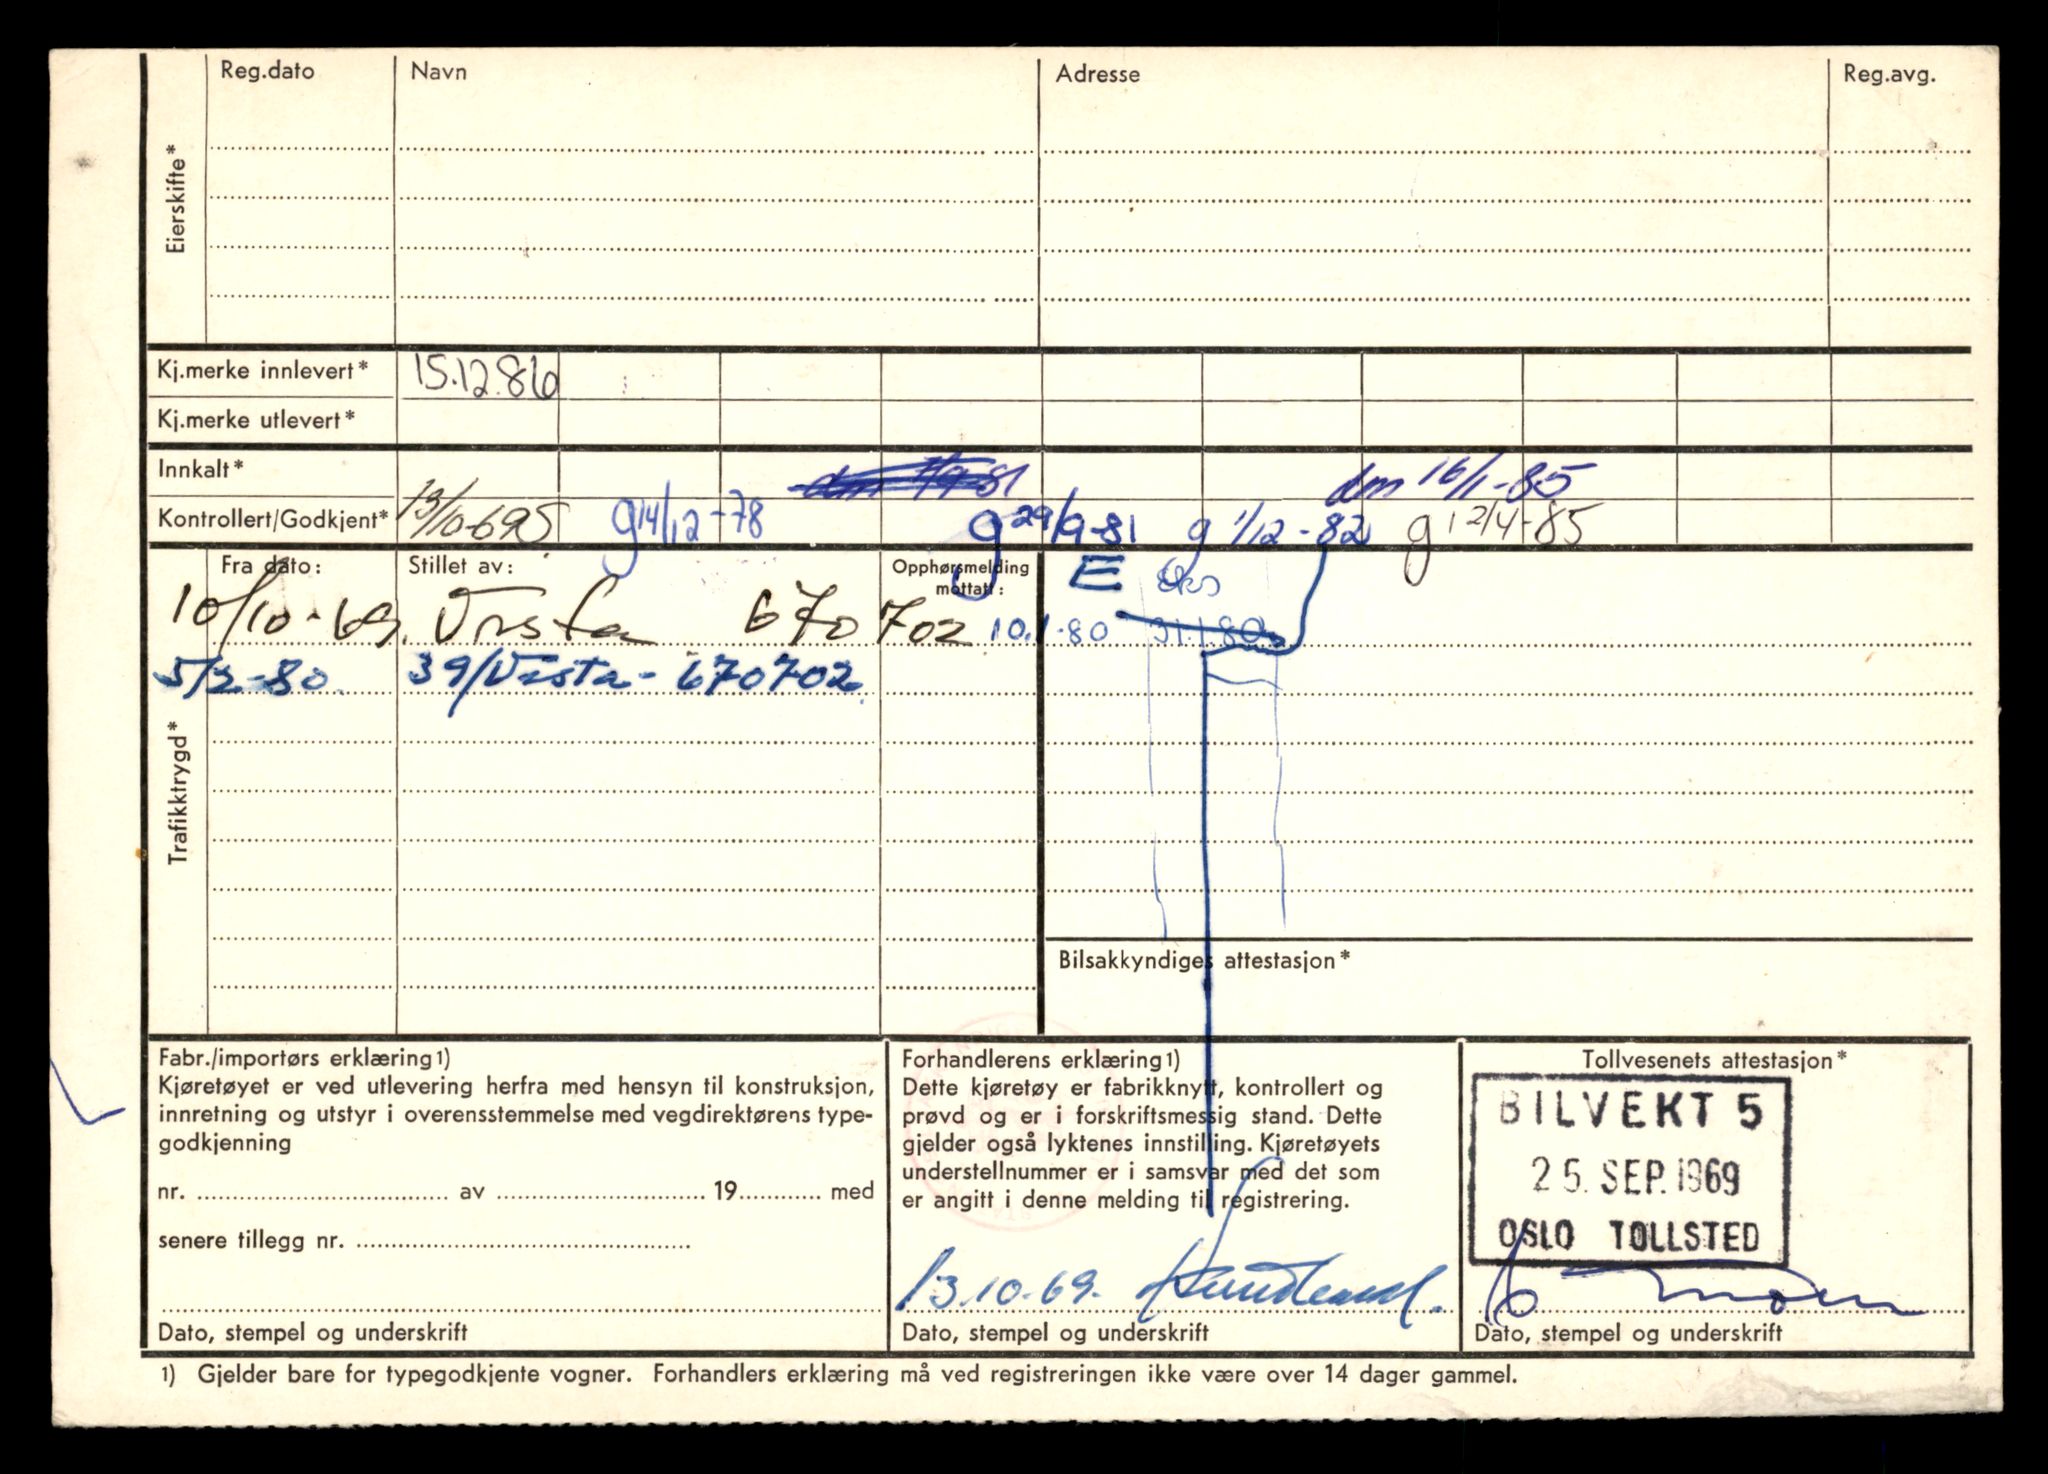 Reg.dato Navn Adresse Reg.avg.
Eierskifte*
Kj.merke innlevert* 15.12.86
Kj.merke utlevert*
Innkalt* dm 16/1-85
Kontrollert/Godkjent* 13/10-69 g 14/12-78 g 29/9-81 g 1/12-82 g 12/4-85
Trafikktrygd*
Fra dato: Stillet av: Opphørsmelding mottatt: E
10/10-69. Vesta 670702 10.1-80 31.1.80
5/2-80 39/Vesta - 670702
Bilsakkyndiges attestasjon*
Fabr./importørs erklæring 1)
Kjøretøyet er ved utlevering herfra med hensyn til konstruksjon,
innretning og utstyr i overensstemmelse med vegdirektørens type-
godkjenning
nr. av 19 med
senere tillegg nr.
Dato, stempel og underskrift
Forhandlerens erklæring 1)
Dette kjøretøy er fabrikknytt, kontrollert og
prøvd og er i forskriftsmessig stand. Dette
gjelder også lyktenes innstilling. Kjøretøyets
understellnummer er i samsvar med det som
er angitt i denne melding til registrering.
13.10.69.
Dato, stempel og underskrift
Tollvesenets attestasjon*
BILVEKT 5
25. SEP. 1969
OSLO TOLLSTED
Dato, stempel og underskrift
1) Gjelder bare for typegodkjente vogner. Forhandlers erklæring må ved registreringen ikke være over 14 dager gammel.